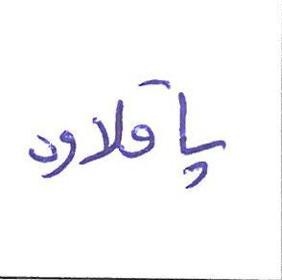 پاقلاود